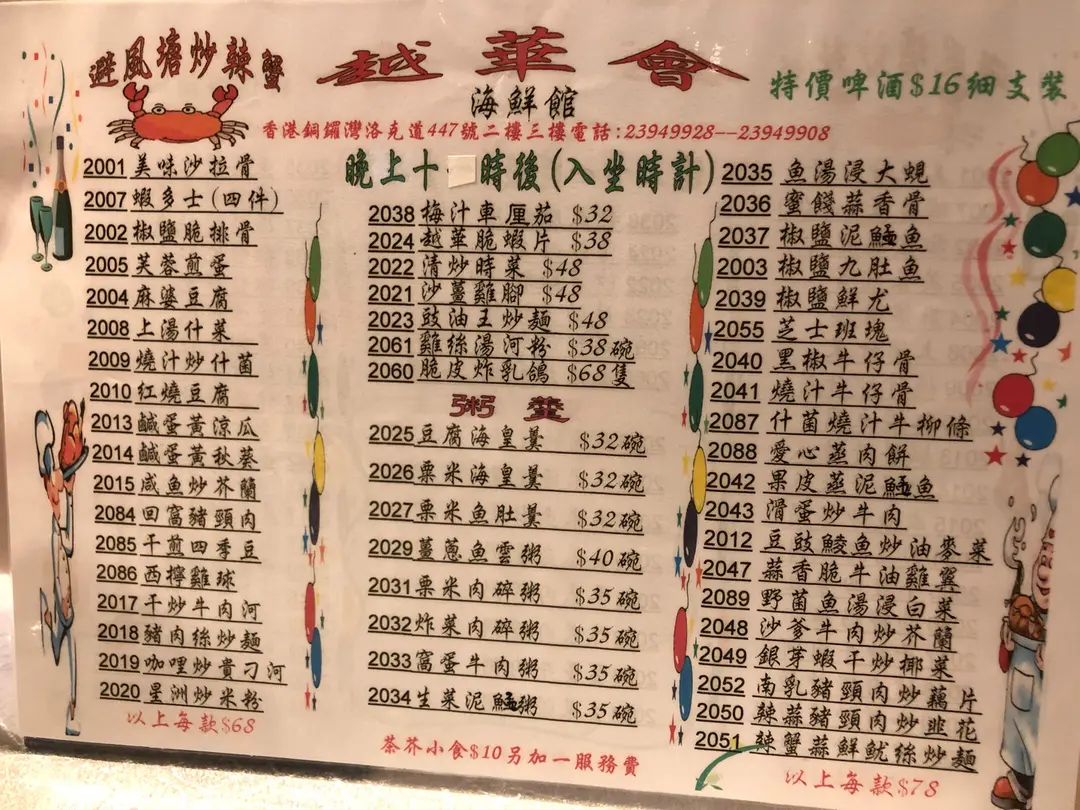 避風塘炒辣蟹
越華會
海鮮館
特價啤酒$16細支裝
香港銅鑼灣洛克道447號二樓三樓電話:23949928--23949908
晚上十 時後(入坐時計)
2001 美味沙拉骨
2007 蝦多士(四件)
2002 椒鹽脆排骨
2005 芙蓉煎蛋
2004 麻婆豆腐
2008 上湯什菜
2009 燒汁炒什菌
2010 紅燒豆腐
2013 鹹蛋黃涼瓜
2014 鹹蛋黃秋葵
2015 咸魚炒芥蘭
2084 回窩豬頸肉
2085 干煎四季豆
2086 西檸雞球
2017 干炒牛肉河
2018 豬肉絲炒麵
2019 咖哩炒貴刁河
2020 星洲炒米粉
以上每款$68
2038 梅汁車厘茄 $32
2024 越華脆蝦片 $38
2022 清炒時菜 $48
2021 沙薑雞腳 $48
2023 豉油王炒麵 $48
2061 雞絲湯河粉 $38碗
2060 脆皮炸乳鴿 $68隻
粥 羹
2025 豆腐海皇羹 $32碗
2026 栗米海皇羹 $32碗
2027 栗米魚肚羹 $32碗
2029 薑蔥魚雲粥 $40碗
2031 栗米肉碎粥 $35碗
2032 炸菜肉碎粥 $35碗
2033 窩蛋牛肉粥 $35碗
2034 生菜泥鯭粥 $35碗
茶芥小食$10另加一服務費
2035 魚湯浸大蜆
2036 蜜餞蒜香骨
2037 椒鹽泥鯭魚
2003 椒鹽九肚魚
2039 椒鹽鮮尤
2055 芝士班塊
2040 黑椒牛仔骨
2041 燒汁牛仔骨
2087 什菌燒汁牛柳條
2088 愛心蒸肉餅
2042 果皮蒸泥鯭魚
2043 滑蛋炒牛肉
2012 豆豉鯪魚炒油麥菜
2047 蒜香脆牛油雞翼
2089 野菌魚湯浸白菜
2048 沙爹牛肉炒芥蘭
2049 銀芽蝦干炒椰菜
2052 南乳豬頸肉炒藕片
2050 辣蒜豬頸肉炒韭花
2051 辣蟹蒜鮮魷絲炒麵
以上每款$78